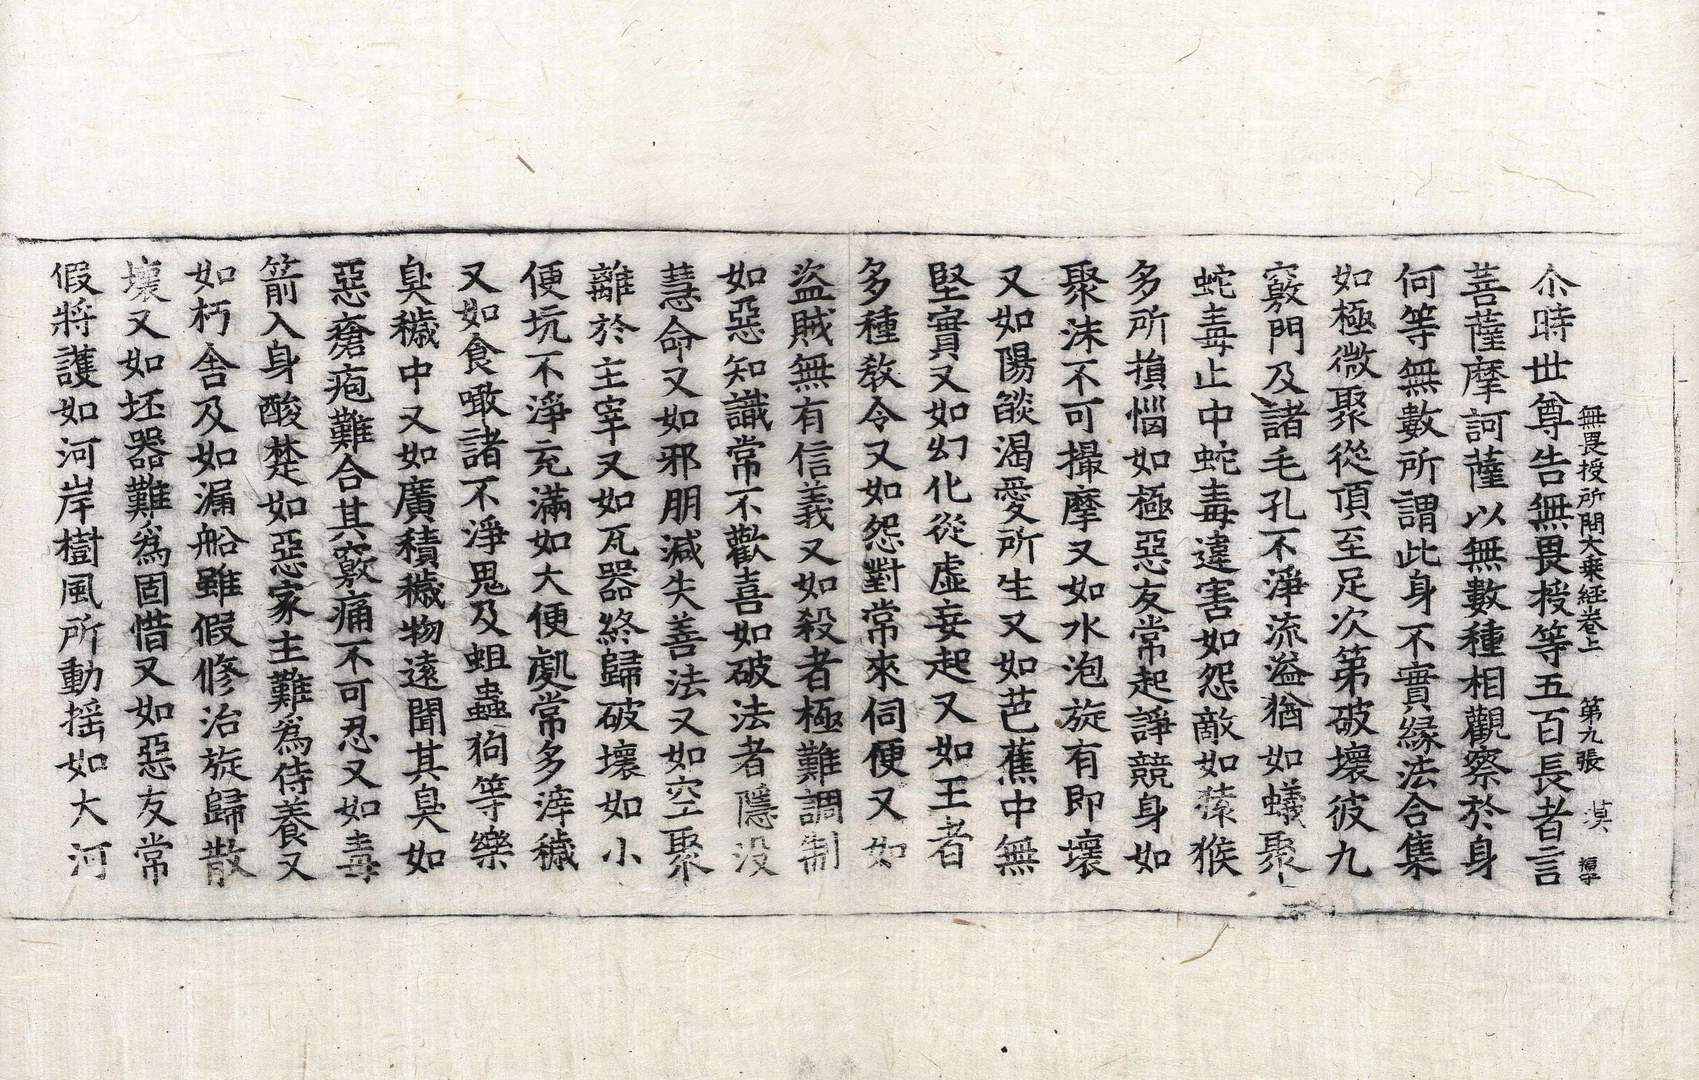 無畏授所問大乗経卷上 第九張 漠
尒時世尊告無畏授等五百長者言
菩薩摩訶薩以無數種相觀察於身
何等無數所謂此身不實緣法合集
如極微聚從頂至足次第破壞彼九
竅門及諸毛孔不淨流溢猶如蟻聚
蛇毒止中蛇毒違害如怨敵如猿猴
多所損惱如極惡友常起諍競身如
聚沫不可撮摩又如水泡旋有即壞
又如陽燄渴愛所生又如芭蕉中無
堅實又如幻化從虛妄起又如王者
多種教令又如怨對常來伺便又如
盜賊無有信義又如殺者極難調制
如惡知識常不歡喜如破法者隱没
慧命又如邪朋減失善法又如空聚
離於主宰又如瓦器終歸破壞如小
便坑不淨充滿如大便處常多滓穢
又如食噉諸不淨鬼及蛆蟲狗等樂
臭穢中又如廣積穢物遠聞其臭如
惡瘡疱難合其竅痛不可忍又如毒
箭入身酸楚如惡家主難爲侍養又
如朽舍及如漏船雖假修治旋歸散
壞又如坯器難爲固惜又如惡友常
假將護如河岸樹風所動搖如大河